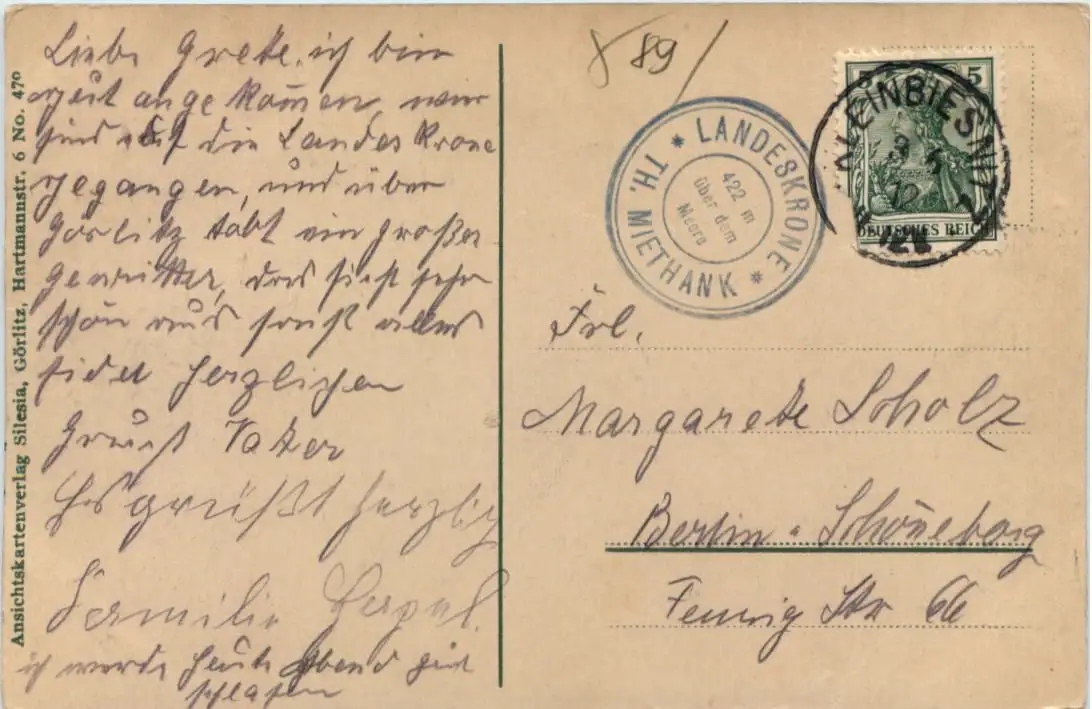 Ansichtskartenverlag Silesia, Görlitz, Hartmannstr. 6 No. 470
Liebe Grete, ich bin
angekommen, wir
sind auf die Landeskrone
gegangen, und über
Görlitz tobt ein großer
Gewitter, das sieht sehr
schön aus sonst alles
fidel Herzlichen
Gruß Vater
Es grüßt herzlich
Familie
ich werde heute Abend gut
schlafen
89
* LANDESKRONE *
TH. MIETHANK
422 m
über dem
Meere
5 5
DEUTSCHES REICH
KLEINBIESNITZ
Frl.
Margarete Scholz
Berlin-Schöneberg
Str 66